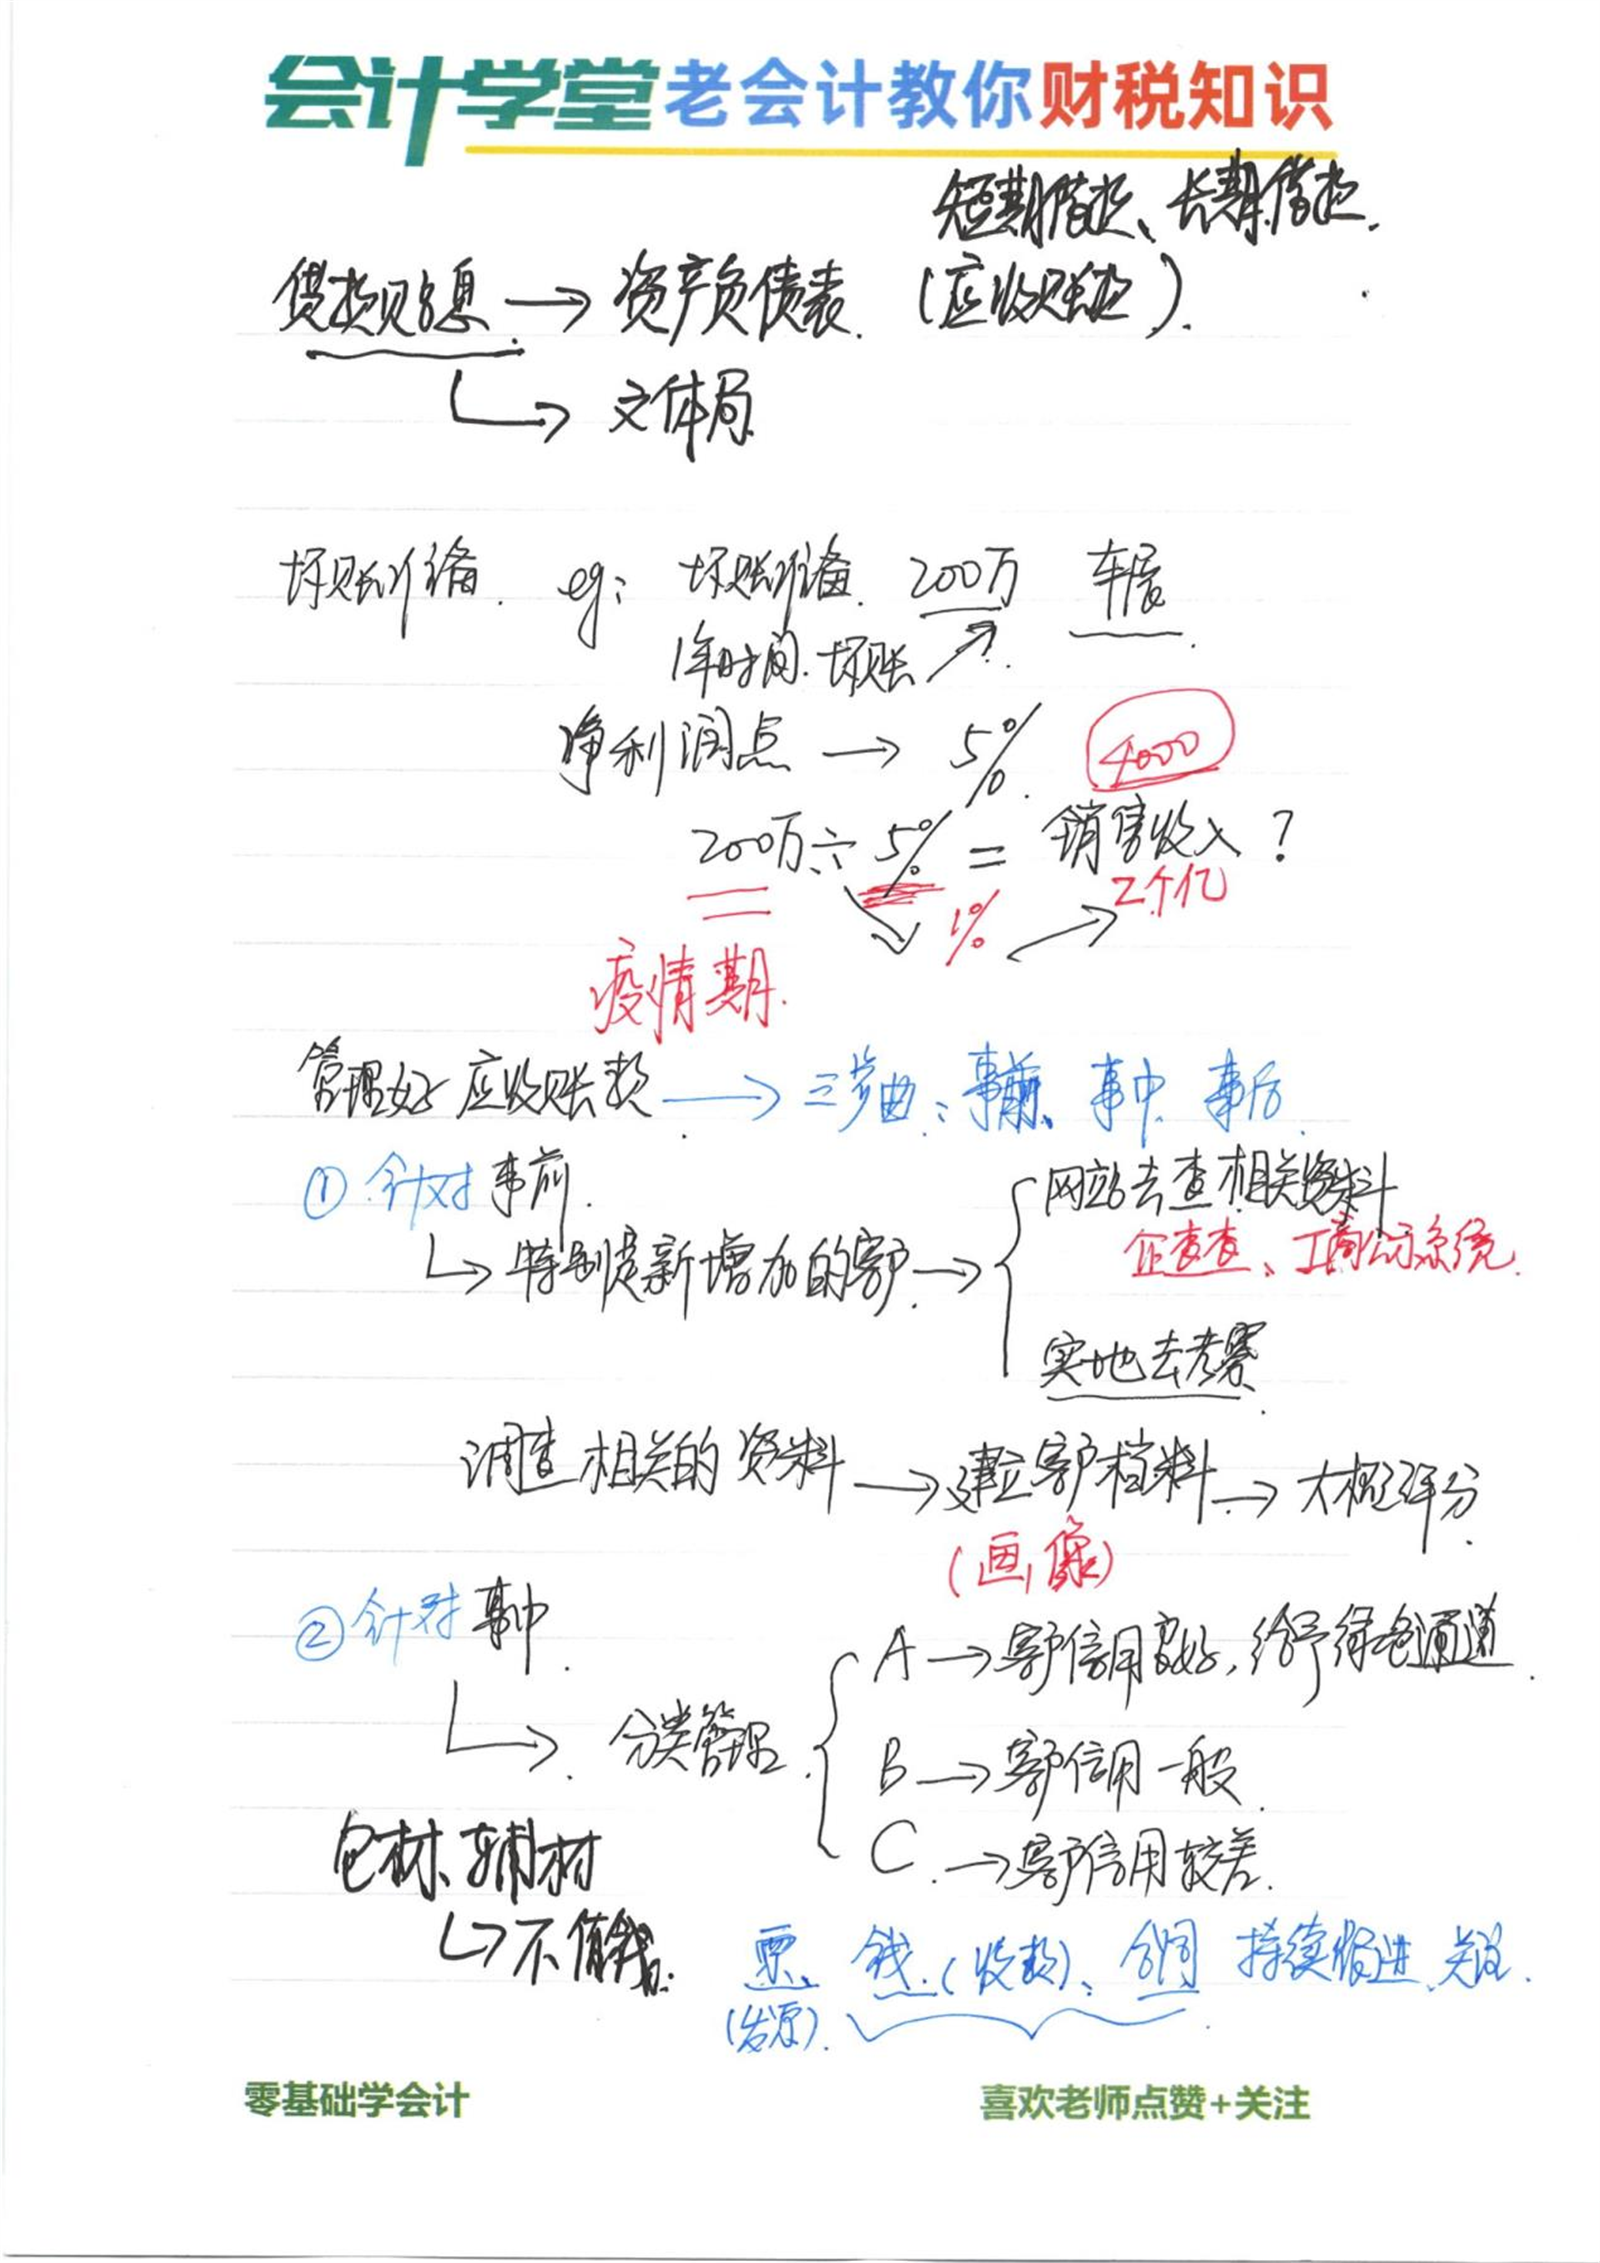 会计学堂老会计教你财税知识
短期借款、长期借款.
贷款贴息 → 资产负债表. (应收账款).
文体局.
坏账准备. eg: 坏账准备. 200万 车展
1年时间. 坏账
净利润点 → 5%. 4000
200万 ÷ 5% = 销售收入?
1% 2个亿
疫情期.
管理好应收账款 → 三步曲: 事前、事中、事后.
① 针对事前.
网站去查相关资料
特别是新增加的客户. →
企查查、工商公示系统.
实地去考察.
调查相关的资料 → 建立客户档料. → 大概评分.
(画像)
② 针对事中.
A → 客户信用良好, 给予绿色通道.
分类管理.
B → 客户信用一般.
包材、辅材
C. → 客户信用较差.
不值钱.
票、钱. (收款)、合同 持续促进、关注.
(发票).
零基础学会计
喜欢老师点赞+关注